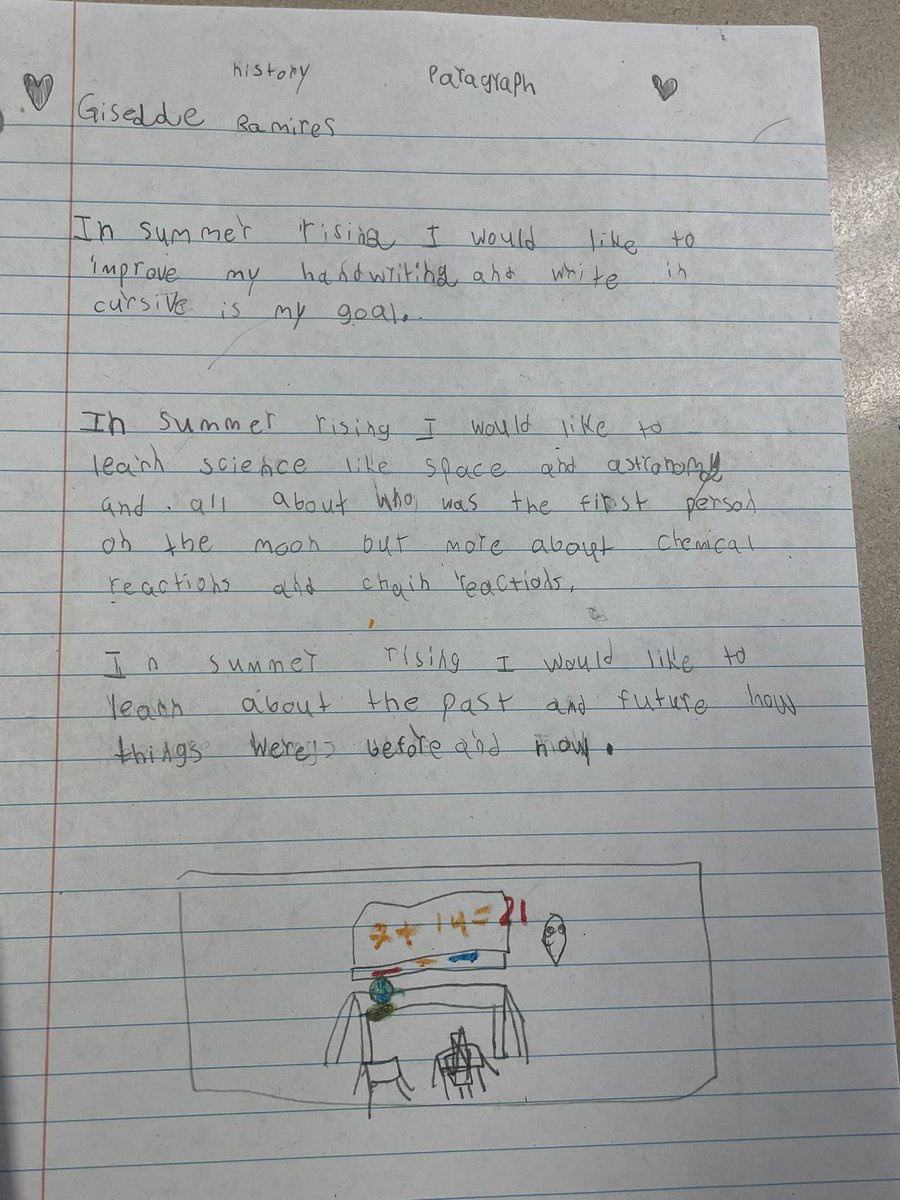 history paragraph
Giselde Ramires
In summer rising I would like to
improve my handwriting and write in
cursive is my goal.
In summer rising I would like to
learn science like space and astronomy
and all about who was the first person
on the moon but more about chemical
reactions and chain reactions.
In summer rising I would like to
learn about the past and future how
things were before and now.
7+14=21